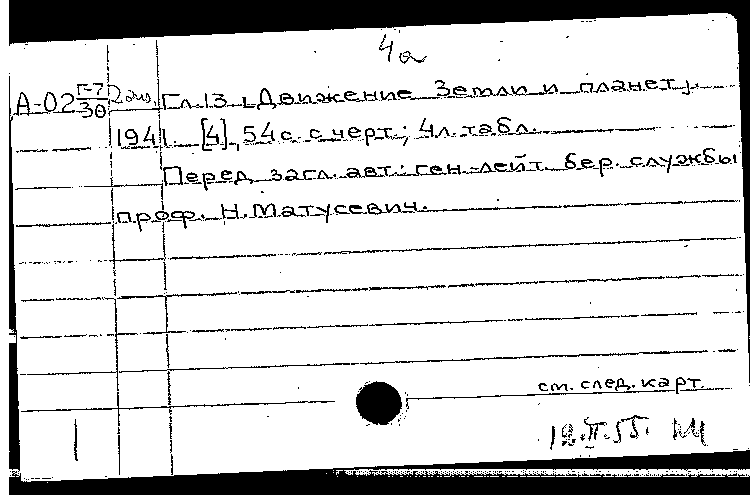 4а
А-02 Г-7/30 2 экз. Гл. 13 [Движение Земли и планет].
1941. [4], 54 с. с черт.; 4 л. табл.
Перед загл. авт.: ген.-лейт. бер. службы
проф. Н. Матусевич.
см. след. карт.
1
12.II.55.